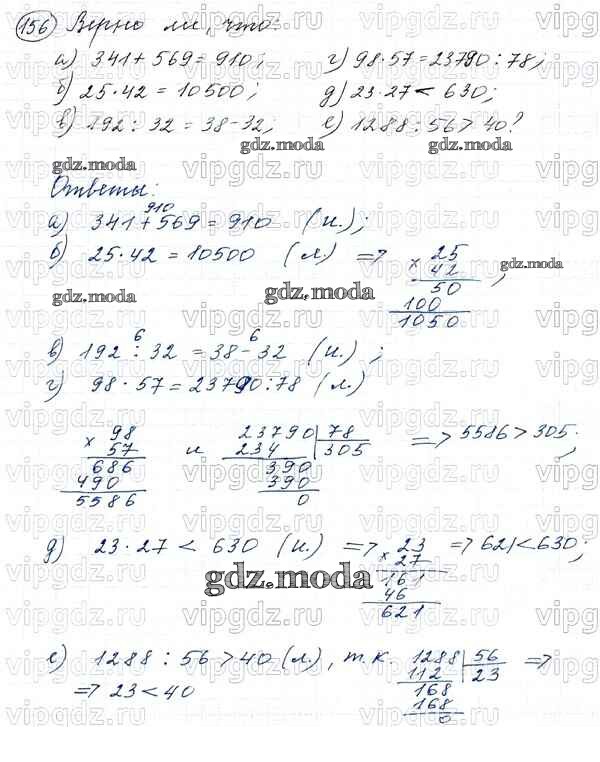 156 Верно ли, что:
а) 341 + 569 = 910; г) 98 · 57 = 23790 : 78;
б) 25 · 42 = 10500; д) 23 · 27 < 630;
в) 192 : 32 = 38 - 32; е) 1288 : 56 > 40?
gdz.moda
gdz.moda
Ответы:
910
а) 341 + 569 = 910 (и.);
б) 25 · 42 = 10500 (л.) => 25
× 42 ;
50
100
1050
gdz.moda
gdz.moda
gdz.moda
6 6
в) 192 : 32 = 38 - 32 (и.);
г) 98 · 57 = 23790 : 78 (л.)
98 и 23790 78 => 5586 > 305;
× 57 234 305
686 390
490 390
5586 0
д) 23 · 27 < 630 (и.) => 23 => 621 < 630;
× 27
161
46
621
gdz.moda
е) 1288 : 56 > 40 (л.), т.к. 1288 56 =>
=> 23 < 40 112 23
168
168
0
vipgdz.ru